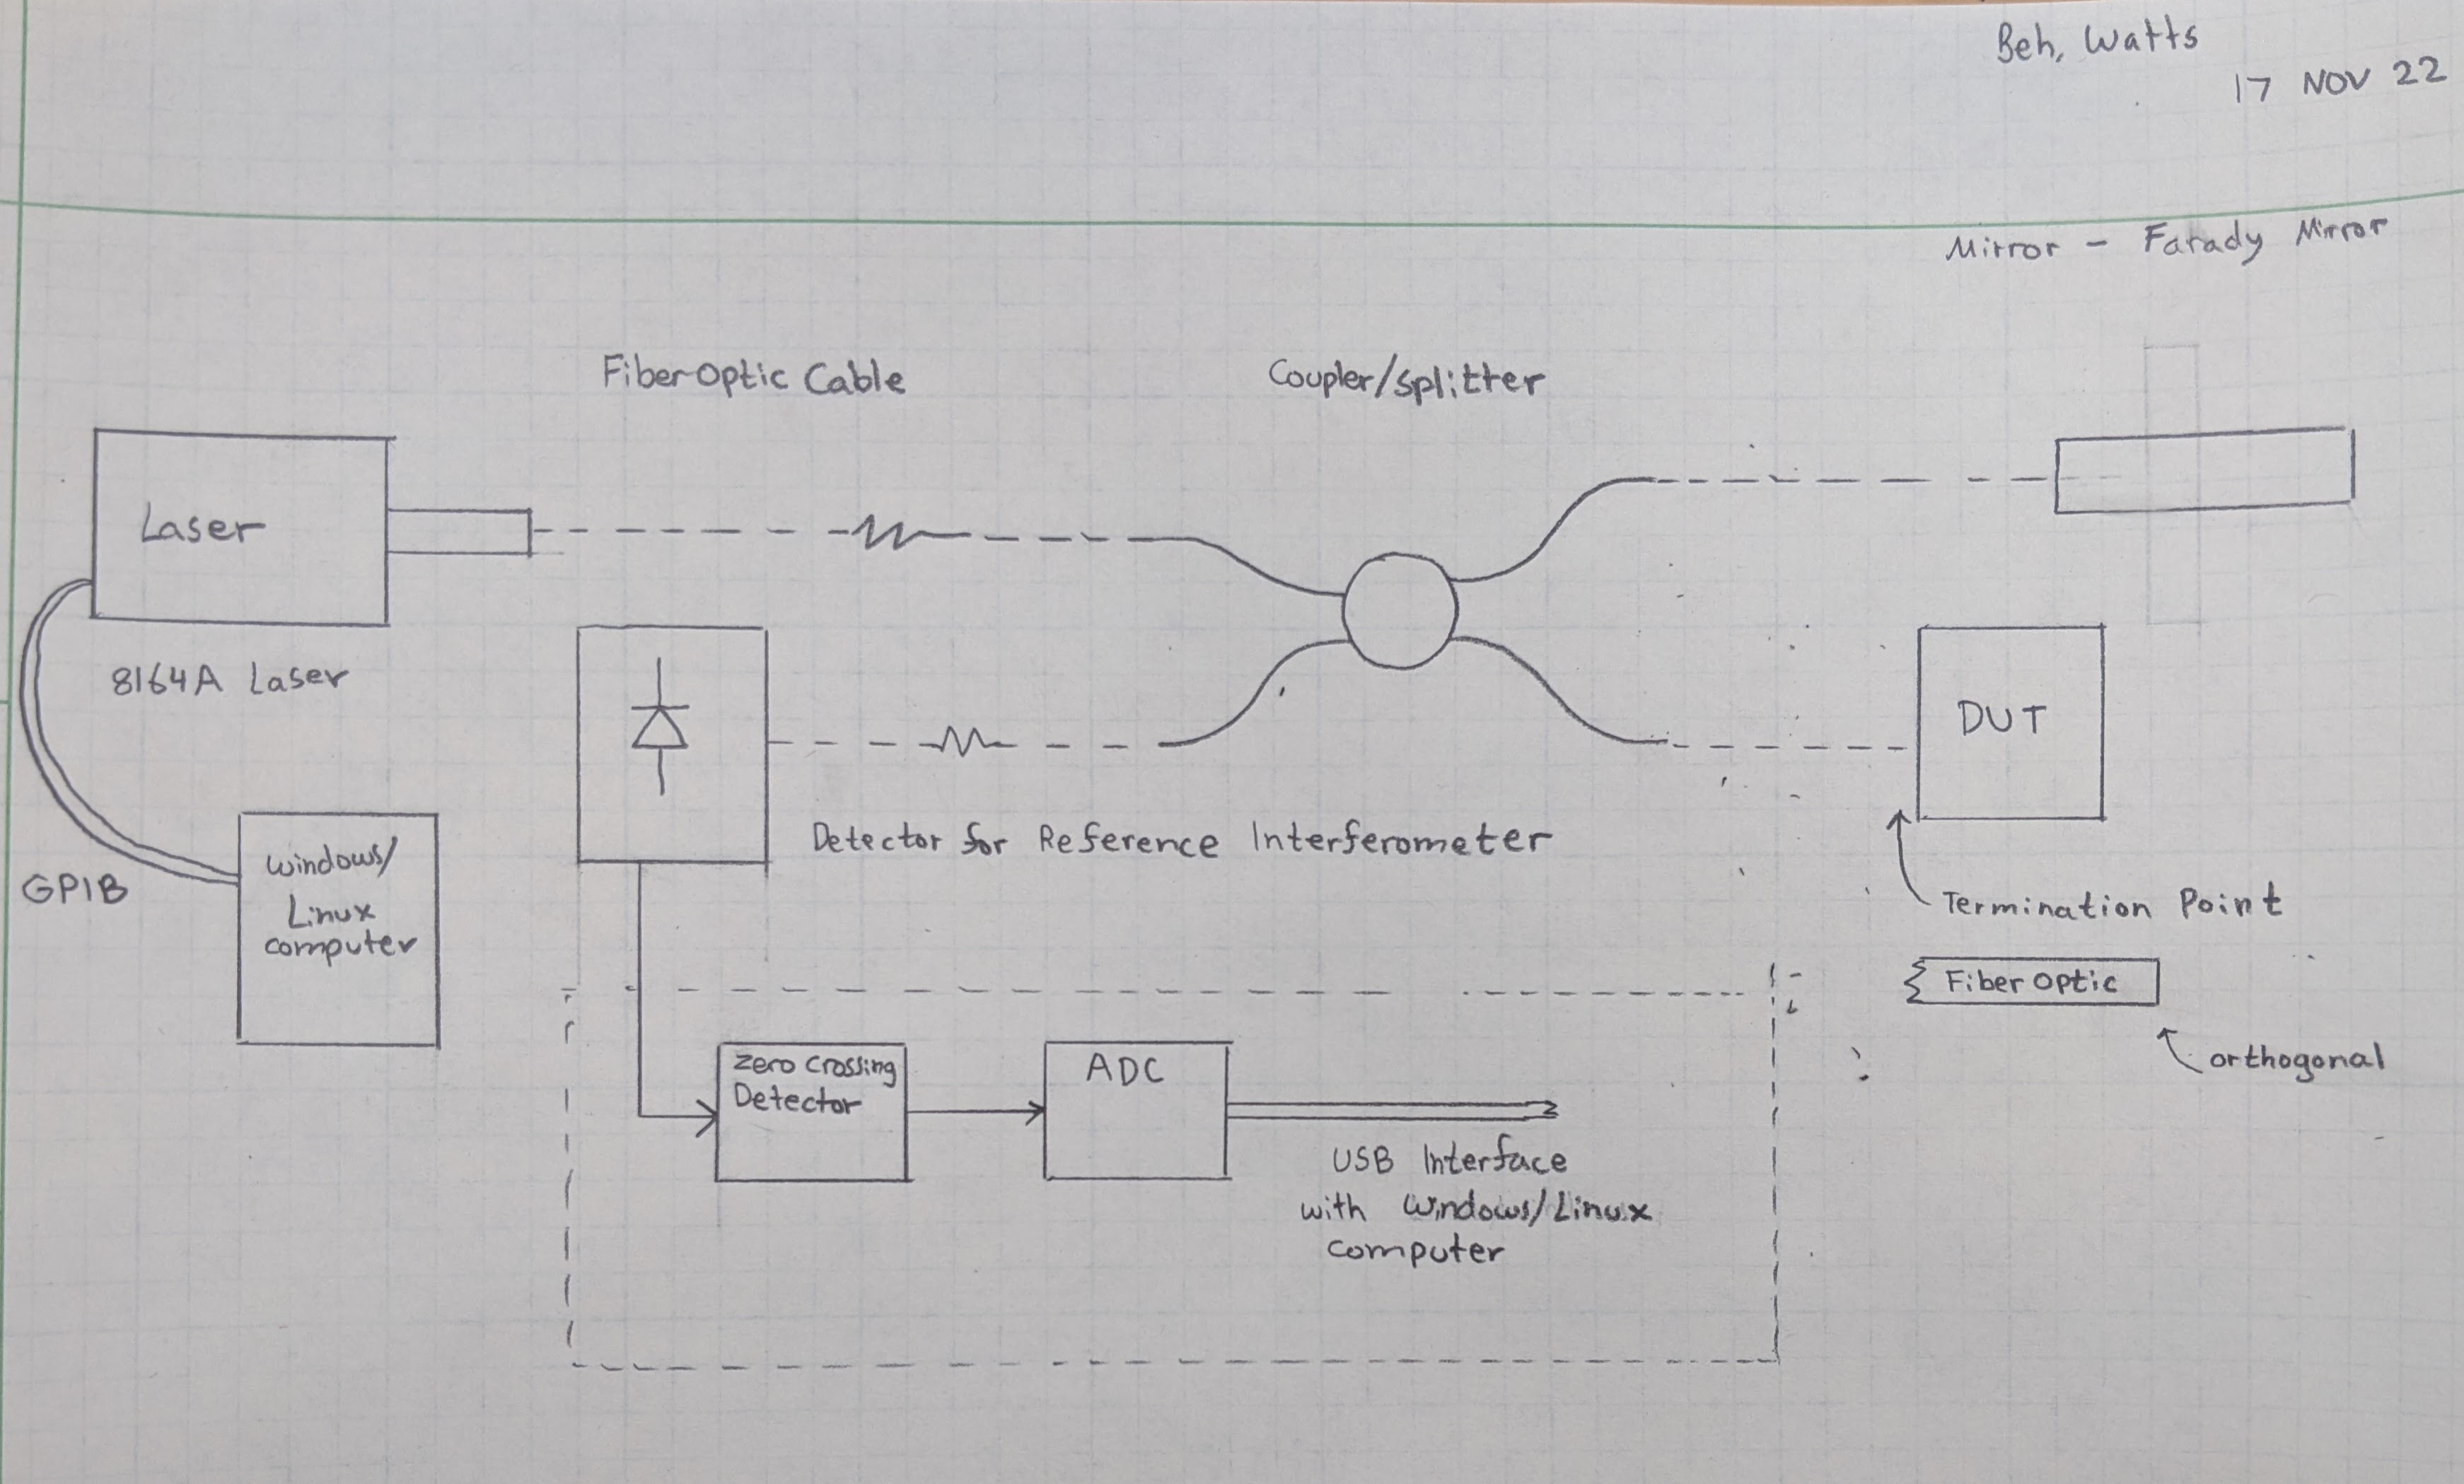 Beh, Watts
17 NOV 22
Mirror - Farady Mirror
Fiber Optic Cable
Coupler/splitter
Laser
8164A Laser
GPIB
windows/
Linux
computer
Detector for Reference Interferometer
DUT
Termination Point
Fiber Optic
orthogonal
Zero Crossing
Detector
ADC
USB Interface
with Windows/Linux
computer